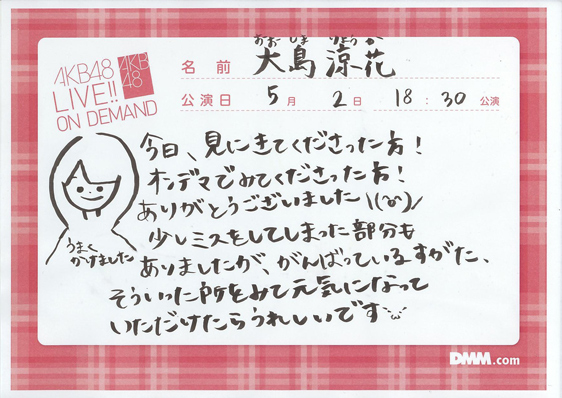 AKB48
LIVE!!
ON DEMAND
AKB
48
おおしま りょうか
名前 大島涼花
公演日 5月 2日 18:30 公演
今日、見にきてくださった方！
オンデマでみてくださった方！
ありがとうございました\(^o^)/
少しミスをしてしまった部分も
ありましたが、がんばっているすがた、
そういった所をみて元気になって
いただけたらうれしいです
うまく
かけました
DMM.com